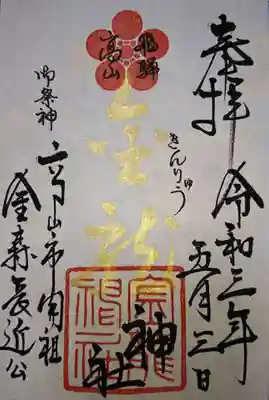 奉拝
令和三年
五月三日
飛騨
高山
きんりゅう
金龍
神社
御祭神
高山市開祖
金森長近公